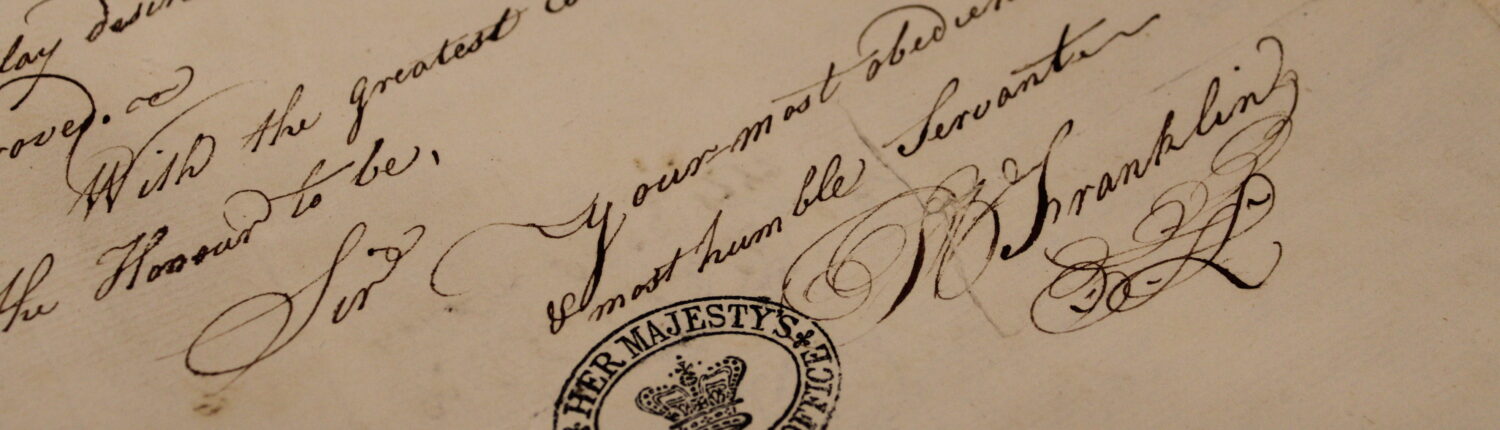 desir
With the greatest
the Honour to be,
Sir
Your most obedien
& most humble Servant
W Franklin
HER MAJESTY'S
OFFICE